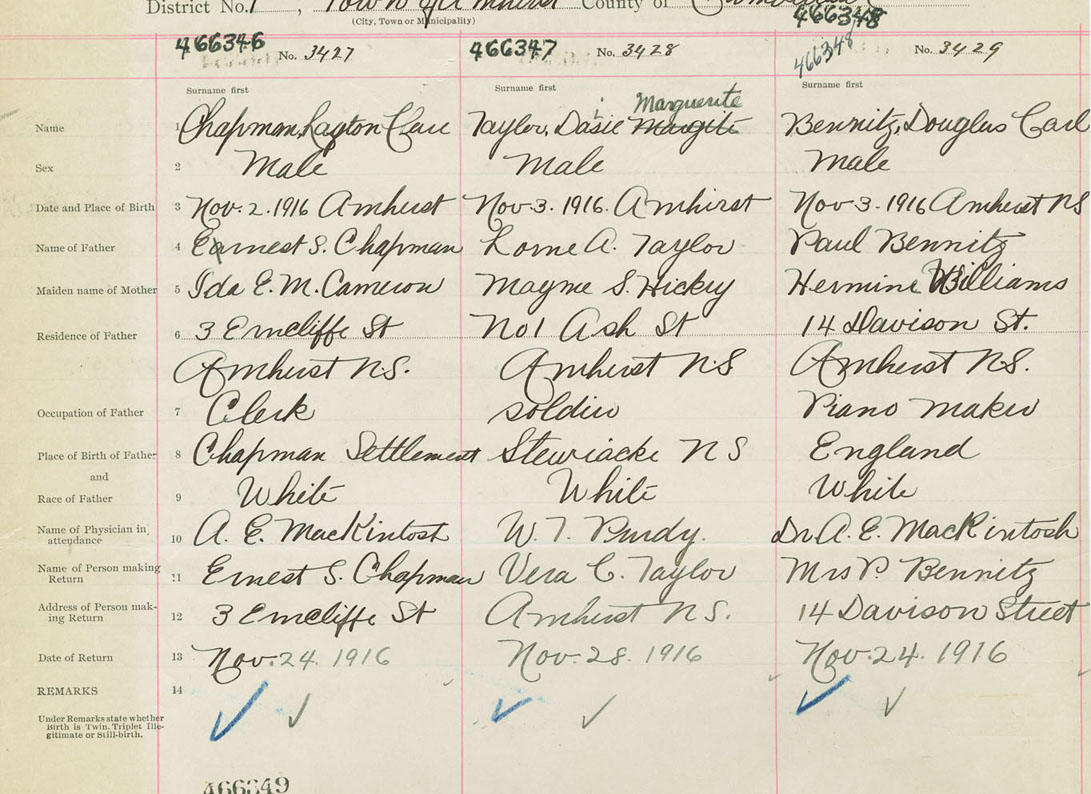 District No. 1, Town of Amherst County of
(City, Town or Municipality)
466348
466346 No. 3427 466347 No. 3428 466348 No. 3429
Surname first Surname first Surname first
Marguerite
Name 1 Chapman, Layton Carl Taylor, Dasie Margite Bennitz, Douglas Carl
Sex 2 Male Male Male
Date and Place of Birth 3 Nov. 2. 1916 Amherst Nov. 3. 1916. Amhirst Nov 3. 1916 Amherst NS
Name of Father 4 Earnest S. Chapman Lorne A. Taylor Paul Bennitz
Maiden name of Mother 5 Ida E. M. Cameron Mayme S. Hickey Hermine Williams
Residence of Father 6 3 Erncliffe St No 1 Ash St 14 Davison St.
Amherst N.S. Amherst N S Amherst N.S.
Occupation of Father 7 Clerk soldier Piano maker
Place of Birth of Father 8 Chapman Settlement Stewiacke N S England
and
Race of Father 9 White White White
Name of Physician in attendance 10 A. E. MacKintosh W. T. Purdy. Dr. A. E. MacKintosh
Name of Person making Return 11 Ernest S. Chapman Vera C. Taylor Mrs P. Bennitz
Address of Person making Return 12 3 Erncliffe St Amherst N.S. 14 Davison Street
Date of Return 13 Nov. 24. 1916 Nov. 28. 1916 Nov. 24. 1916
REMARKS 14
Under Remarks state whether
Birth is Twin. Triplet Ille-
gitimate or Still-birth.
466349